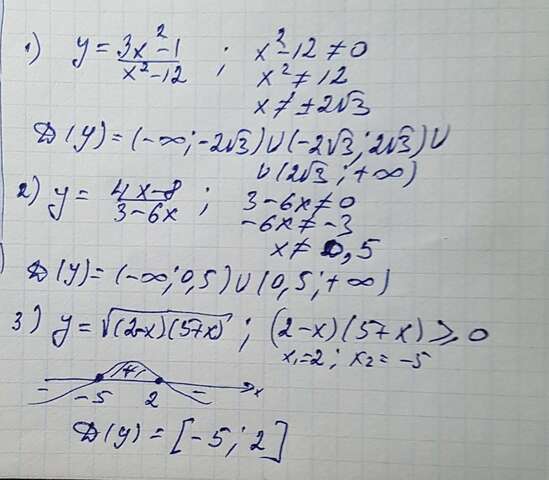 1) y = (3x²-1)/(x²-12) ; x²-12 ≠ 0
x² ≠ 12
x ≠ ±2√3
D(y) = (-∞; -2√3)∪(-2√3; 2√3)∪
∪(2√3; +∞)
2) y = (4x-8)/(3-6x) ; 3-6x ≠ 0
-6x ≠ -3
x ≠ 0,5
D(y) = (-∞; 0,5)∪(0,5; +∞)
3) y = √((2-x)(5+x)) ; (2-x)(5+x) ≥ 0
x₁=2; x₂=-5
- + -
-5 2 x
D(y) = [-5; 2]